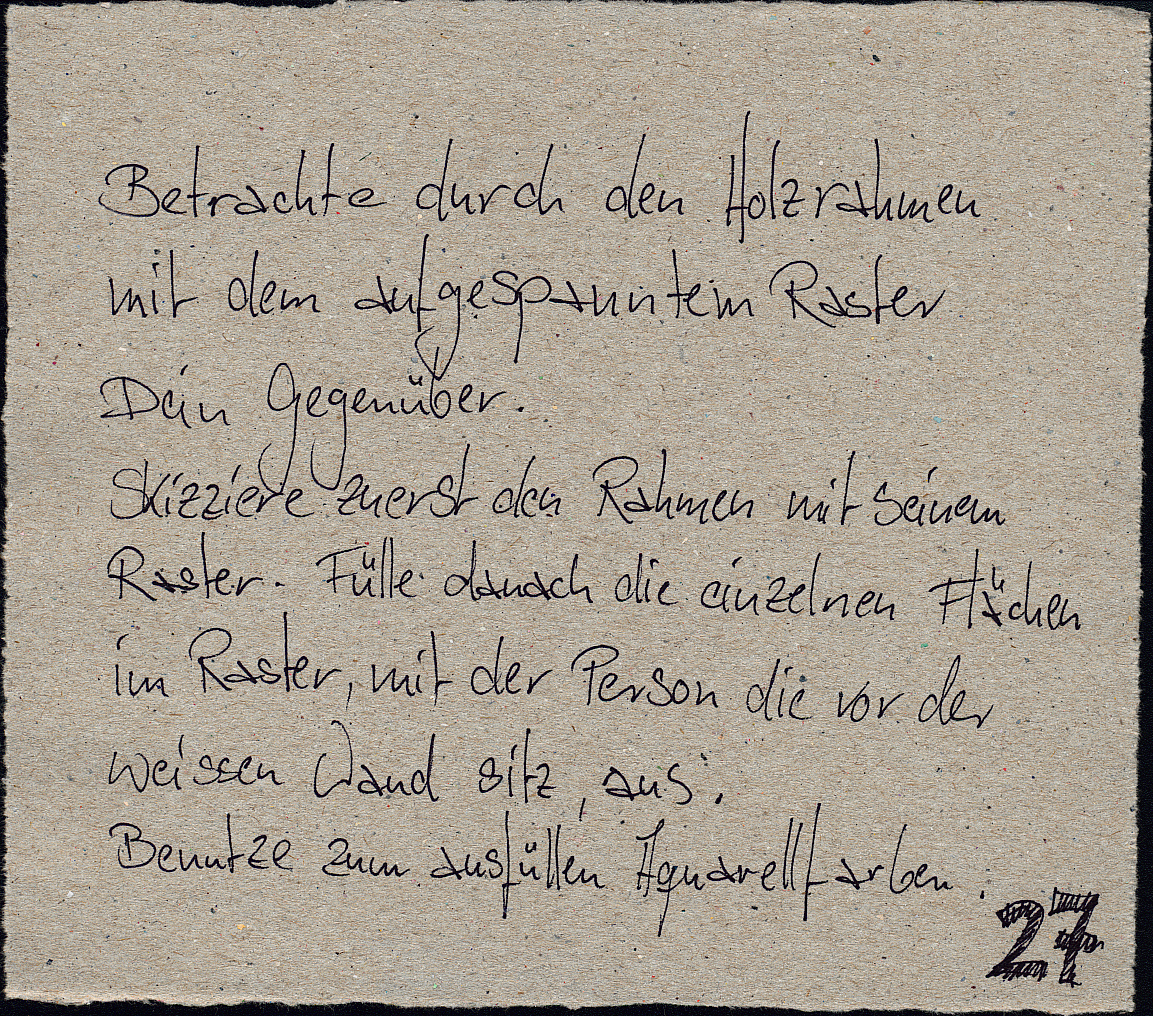 Betrachte durch den Holzrahmen
mit dem aufgespanntem Raster
Dein Gegenüber.
Skizziere zuerst den Rahmen mit seinem
Raster. Fülle danach die einzelnen Flächen
im Raster, mit der Person die vor der
weissen Wand sitz, aus.
Benutze zum ausfüllen Aquarellfarben.
27